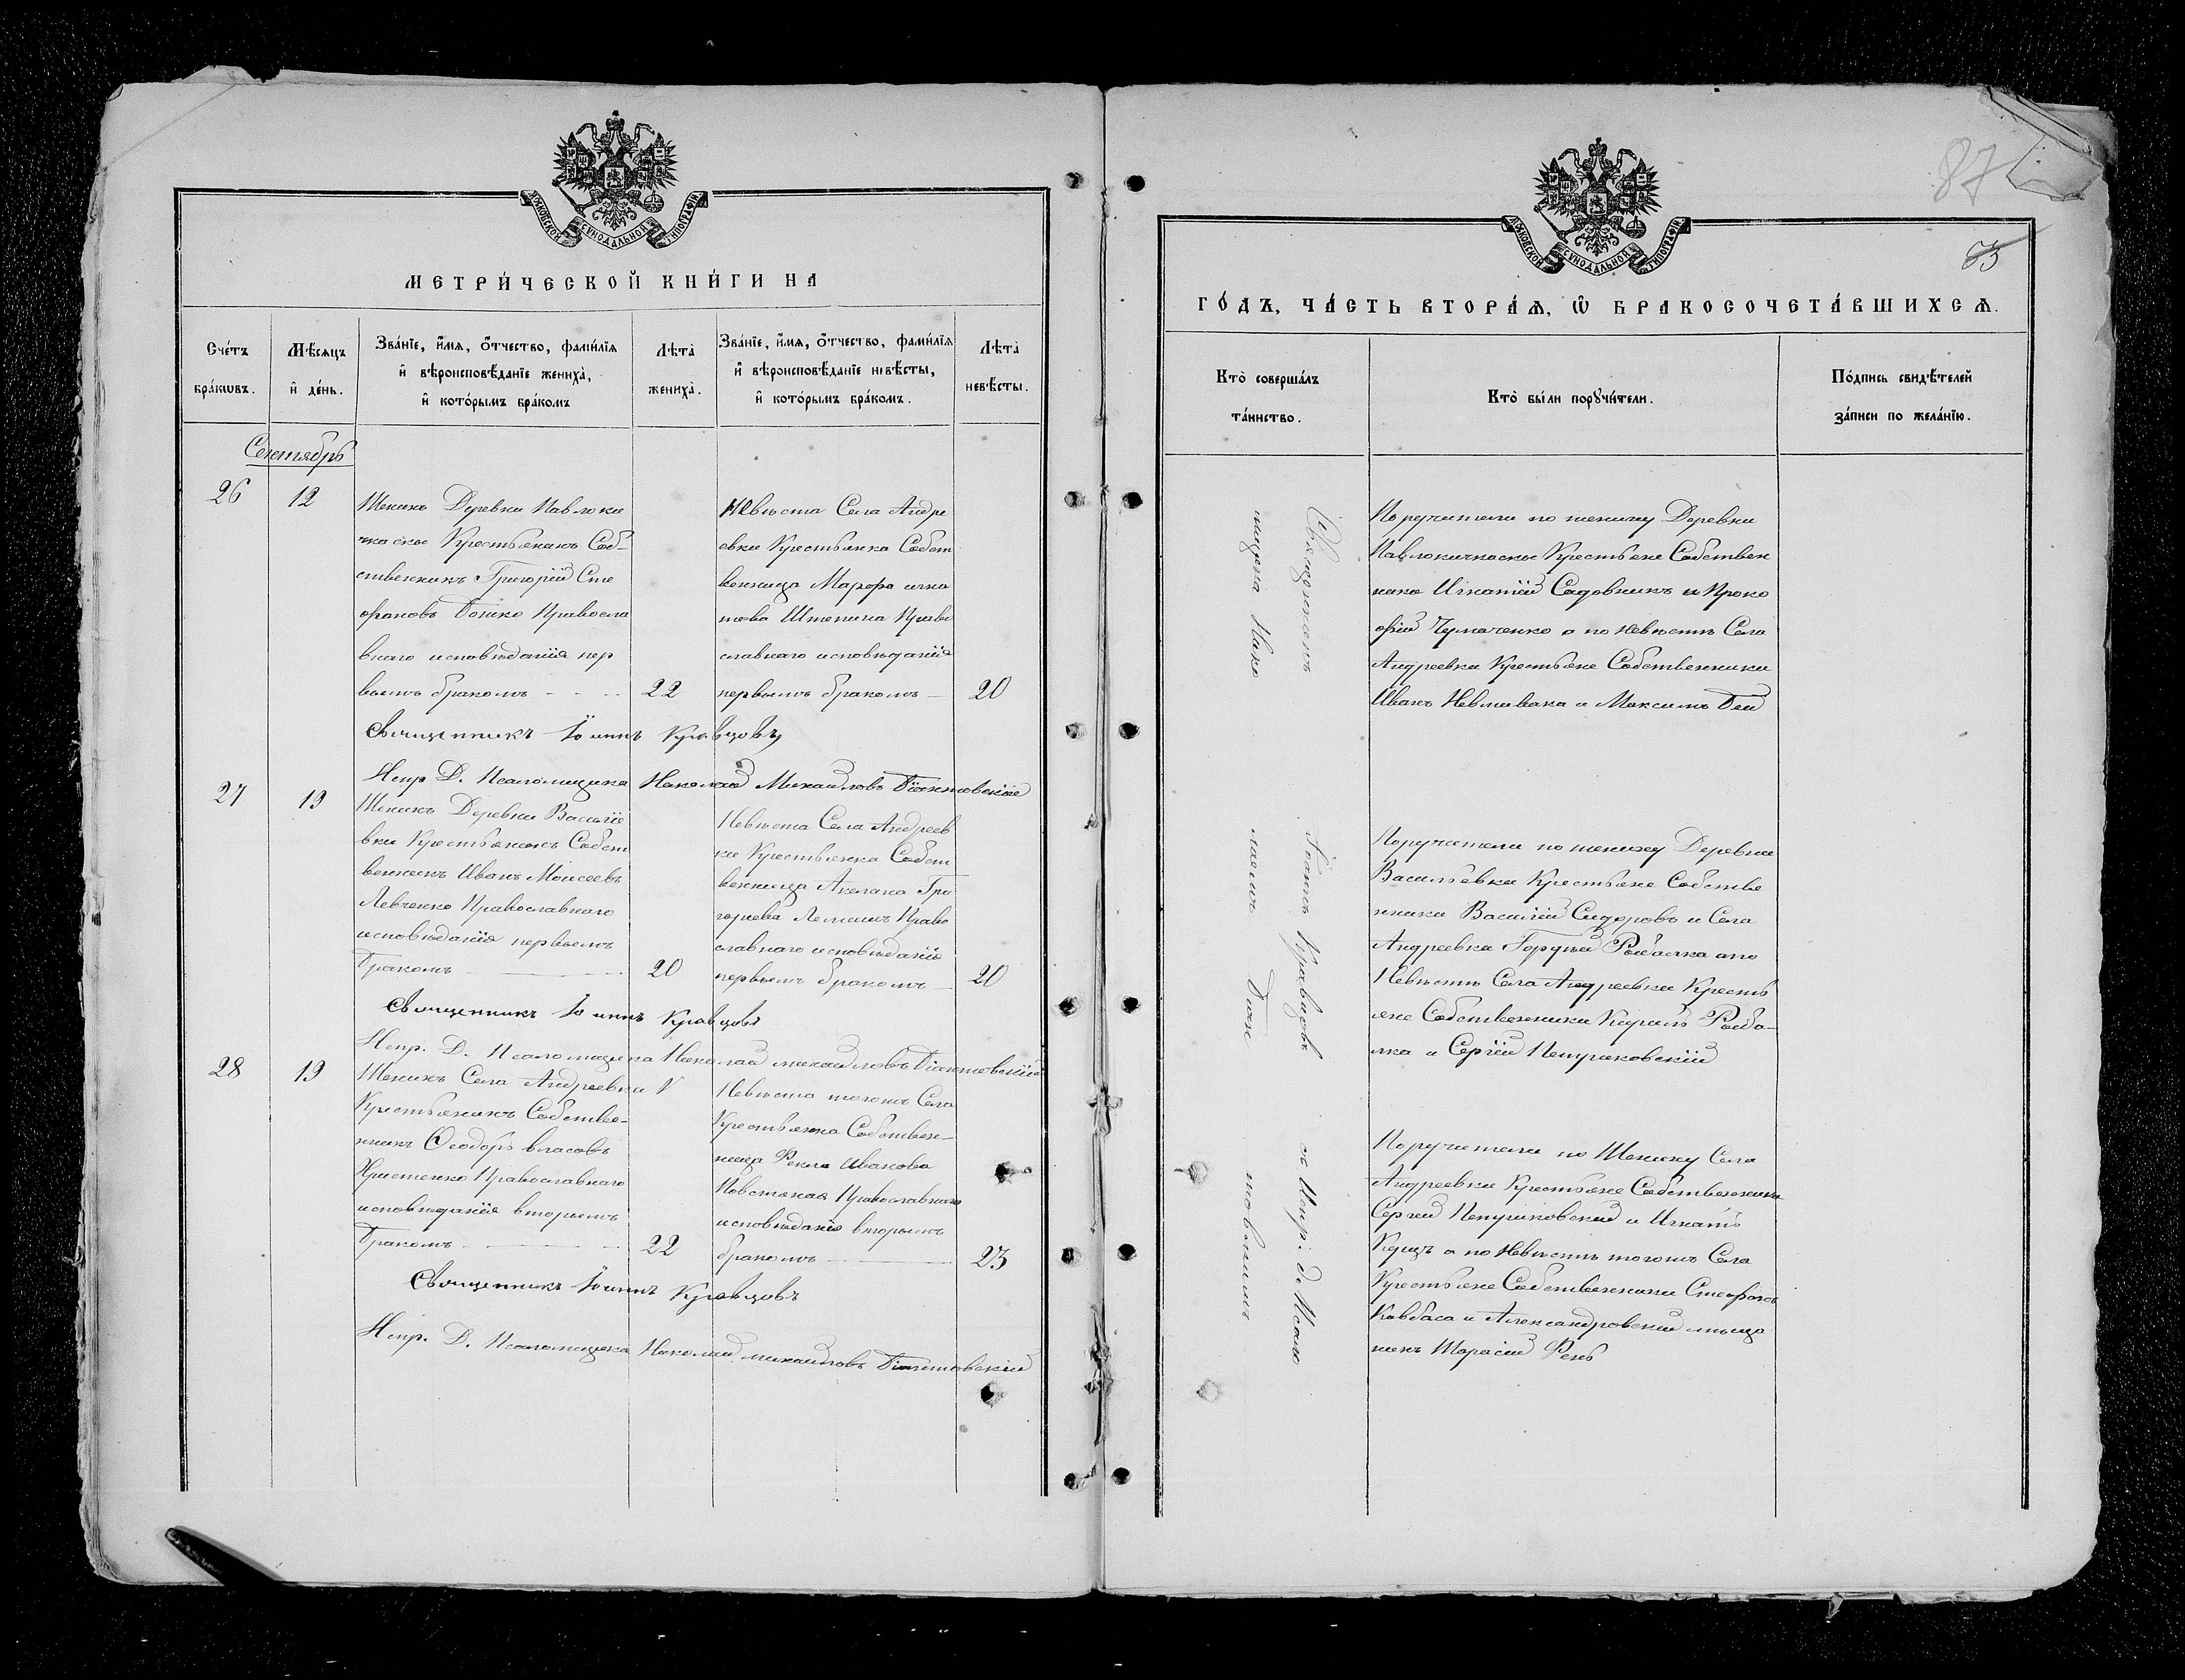 МОСКОВСКОЙ СУНОДАЛЬНОЙ ТИПОГРАФІИ
МЕТРИ́ЧЕСКОЙ КНИ́ГИ НА
Сче́тъ
бра́кωвъ.
Мѣ́сяцъ
и҆ де́нь.
Зва́нїе, и҆́мѧ, о҆́тчество, фамі́лїѧ
и҆ вѣроисповѣ́данїе жениха̀,
и҆ кото́рымъ бра́комъ
Лѣта̀
жениха̀.
Зва́нїе, и҆́мѧ, о҆́тчество, фамі́лїѧ
и҆ вѣроисповѣ́данїе невѣ́сты,
и҆ кото́рымъ бра́комъ.
Лѣта̀
невѣ́сты.
Сентябрь
26
12
Женихъ Деревни Павлоки
чкаскъ Крестьянинъ Соб-
ственникъ Григорій Сте
фановъ Бойко Правосла
внаго исповѣданія пер
вымъ бракомъ
22
Невѣста Села Андре
евки Крестьянка Собст
венница Марфа игна
това Штепина Право
славнаго исповѣданія
первымъ бракомъ
20
Священникъ Іоаннъ Кравцовъ
Испр. Д. Псаломщика Николай Михаиловъ Діонтовскій
27
19
Женихъ Деревни Василіе
вки Крестьянинъ Собст
венникъ Иванъ Моисеевъ
Левченко Православнаго
исповѣданія первымъ
бракомъ
20
Невѣста Села Андреев
ки Крестьянка Собст
венница Акелина Гри
горіева Лемишъ Право
славнаго исповѣданія
первымъ бракомъ
20
Священникъ Іоаннъ Кравцовъ
Испр. Д. Псаломщика Николай михаиловъ Діонтовскій
28
19
Женихъ Села Андреевки
Крестьянинъ Собстве-
нникъ Ѳеодоръ власовъ
Христенко Православнаго
исповѣданія вторымъ
бракомъ
22
Невѣста тогожъ Села
Крестьянка Собствен-
ница Фекла иванова
Повстяная Православнаго
исповѣданія вторымъ
бракомъ
23
Священникъ Іоаннъ Кравцовъ
Испр. Д. Псаломщика Николай михаиловъ Діонтовскій
87
МОСКОВСКОЙ СУНОДАЛЬНОЙ ТИПОГРАФІИ
ГО́ДЪ, ЧА́СТЬ ВТОРА́Ѧ, Ѡ҆ БРАКОСОЧЕТА́ВШИХСѦ.
Кто̀ соверша́лъ
та́инство.
Кто̀ бы́ли порꙋчи́тели.
По́дпись свидѣ́телей
за́писи по жела́нїю.
Священникъ Іоаннъ Кравцовъ съ Испр: д. Псало
мщика Нико лаемъ Діон товскимъ
Поручители по жениху Деревни
Павлокичкаскъ Крестьяне Собствен
ники Игнатій Садовникъ и Проко
фій Чумаченко а по Невѣстѣ Села
Андреевки Крестьяне Собственники
Иванъ Невливака и Максимъ Бей
Поручители по жениху Деревни
Васильевки Крестьяне Собстве
нники Василій Сидоровъ и Села
Андреевки Гордѣй Рыбалка а по
Невѣстѣ Села Андреевки Кресть
яне Собственники Кирилъ Рыба-
лка и Сергій Пепушковскій
Поручители по Жениху Села
Андреевки Крестьяне Собственники
Сергій Пепушковскій и Игнатъ
Куцъ а по Невѣстѣ тогожъ Села
Крестьяне Собственники Стефанъ
Ковбаса и Александровскій мѣща
нинъ Тарасій Рень